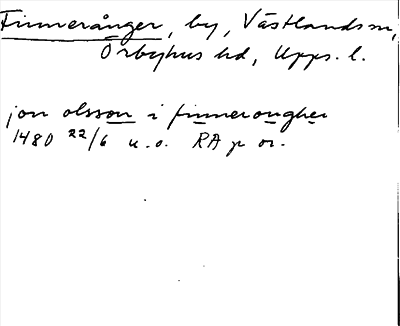 Finnerånger, by, Västlands sn,
Örbyhus hd, Upps. l.
jon olsson i finneronghe
1480 22/6 u.o. RA p or.